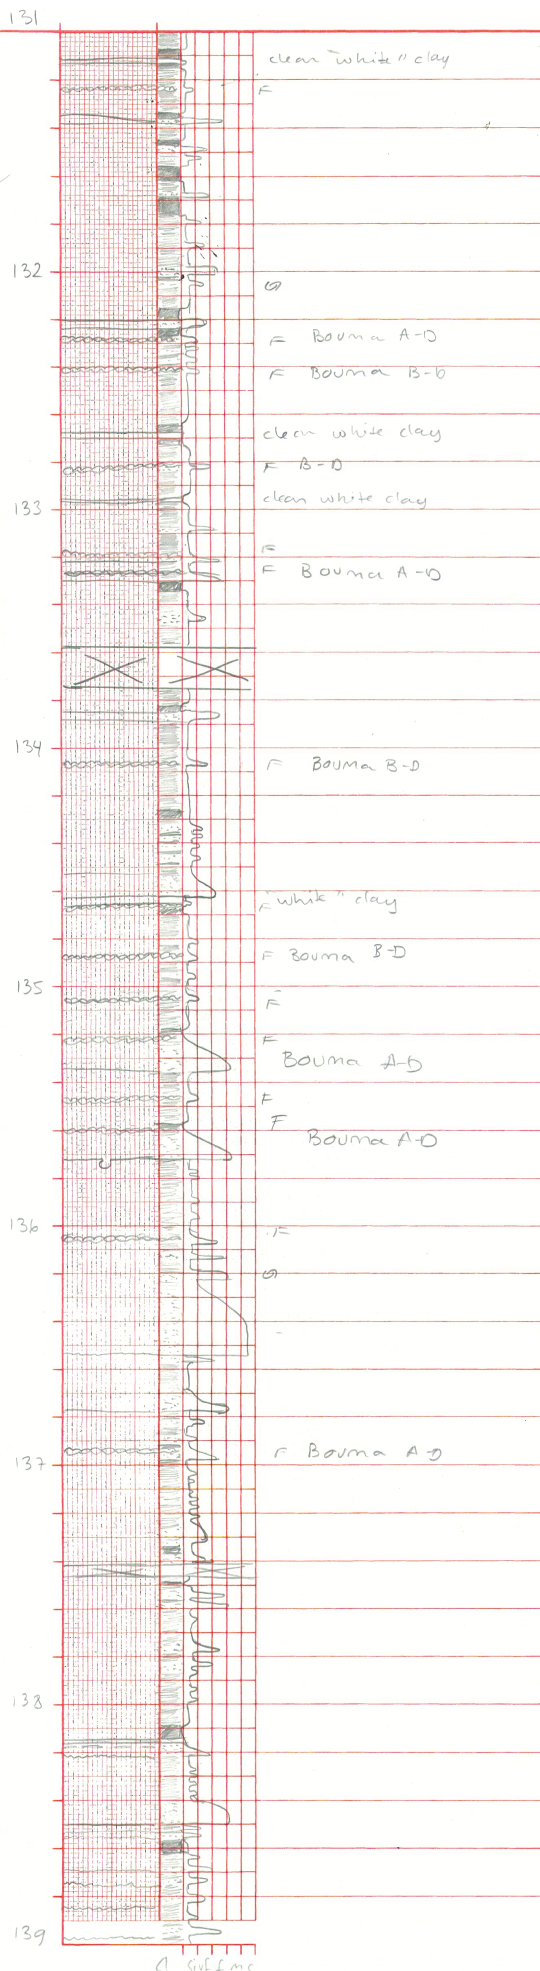 131
clean "white" clay
F
132
F Bouma A-D
F Bouma B-D
clean white clay
F B-D
133
clean white clay
F
F Bouma A-D
134
F Bouma B-D
"white" clay
F
F Bouma B-D
135
F
F
Bouma A-D
F
F
Bouma A-D
136
F
137
F Bouma A-D
138
139
cl si vf f m c